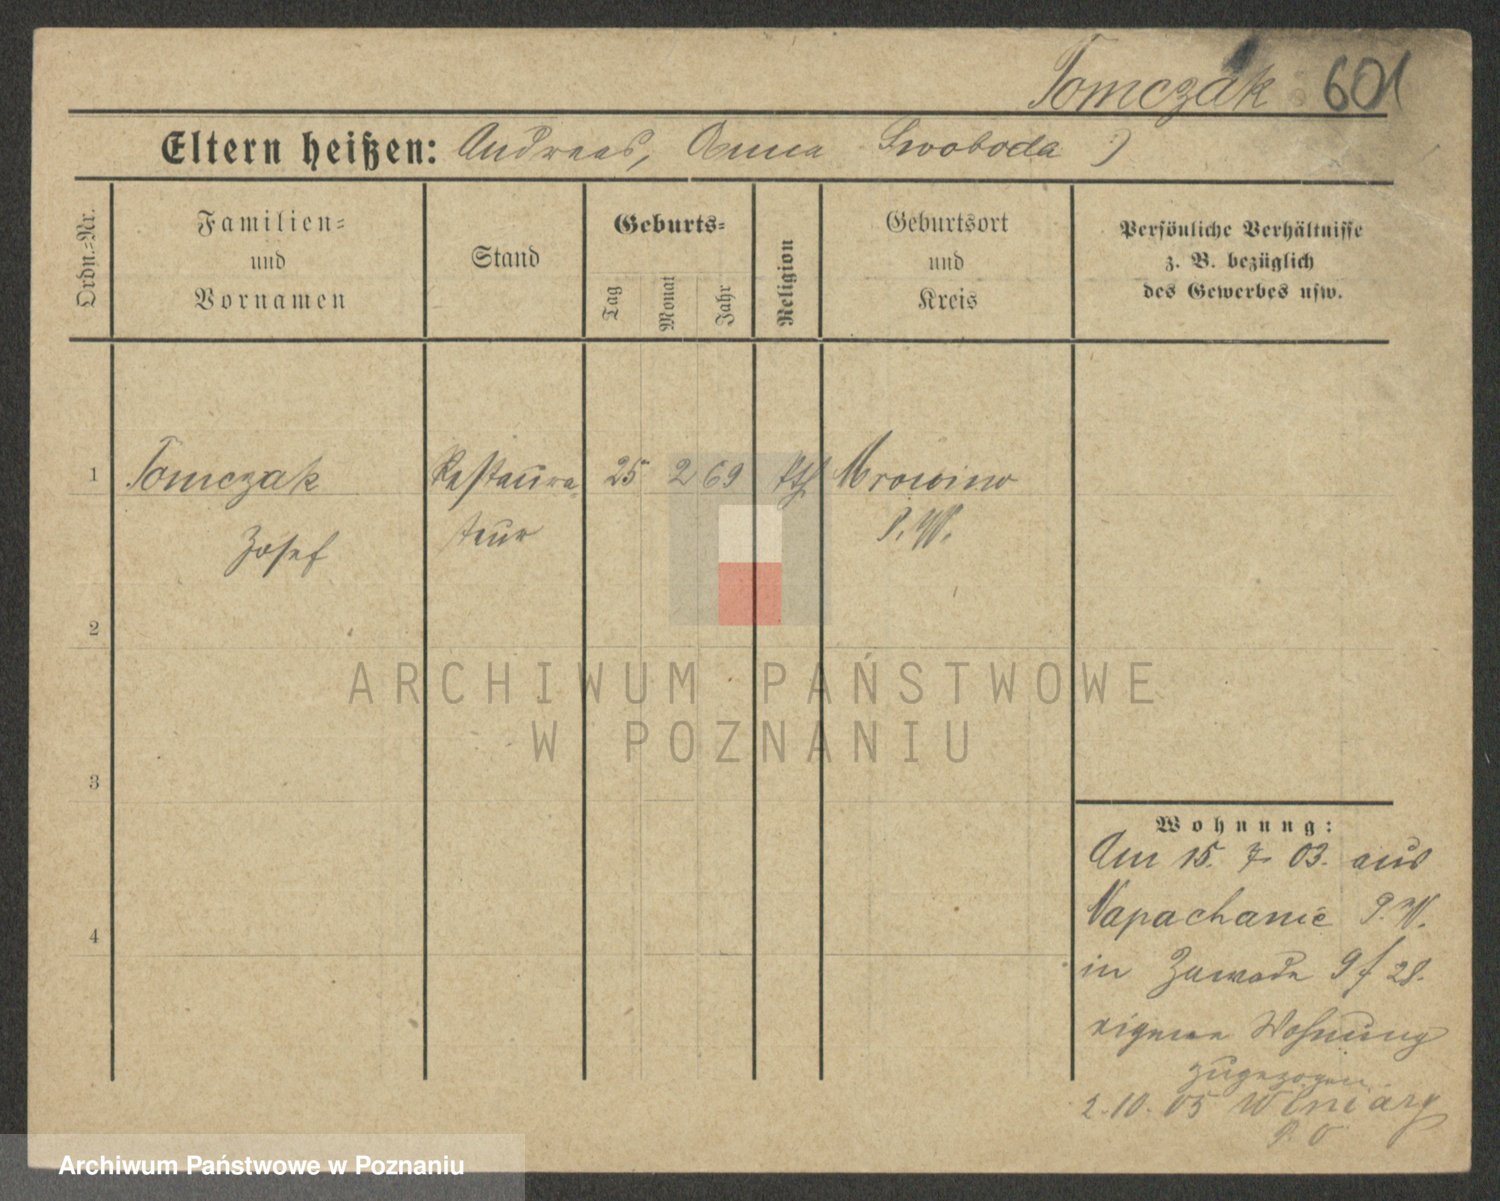 Tomczak 601
Eltern heißen: Andreas, Anna Swoboda )
Ordn.-Nr.
Familien-
und
Vornamen
Stand
Geburts-
Tag
Monat
Jahr
Religion
Geburtsort
und
Kreis
Persönliche Verhältnisse
z. B. bezüglich
des Gewerbes usw.
1 Tomczak Restaura- 25 2 69 kth Mrowino
Josef teur P. W.
2
3
4
Wohnung:
Am 15. 7. 03. aus
Napachanie P. W.
in Zawade 9 f 28.
eigene Wohnung
zugezogen
2.10.05 Winiary
P. O
ARCHIWUM PAŃSTWOWE
W POZNANIU
Archiwum Państwowe w Poznaniu